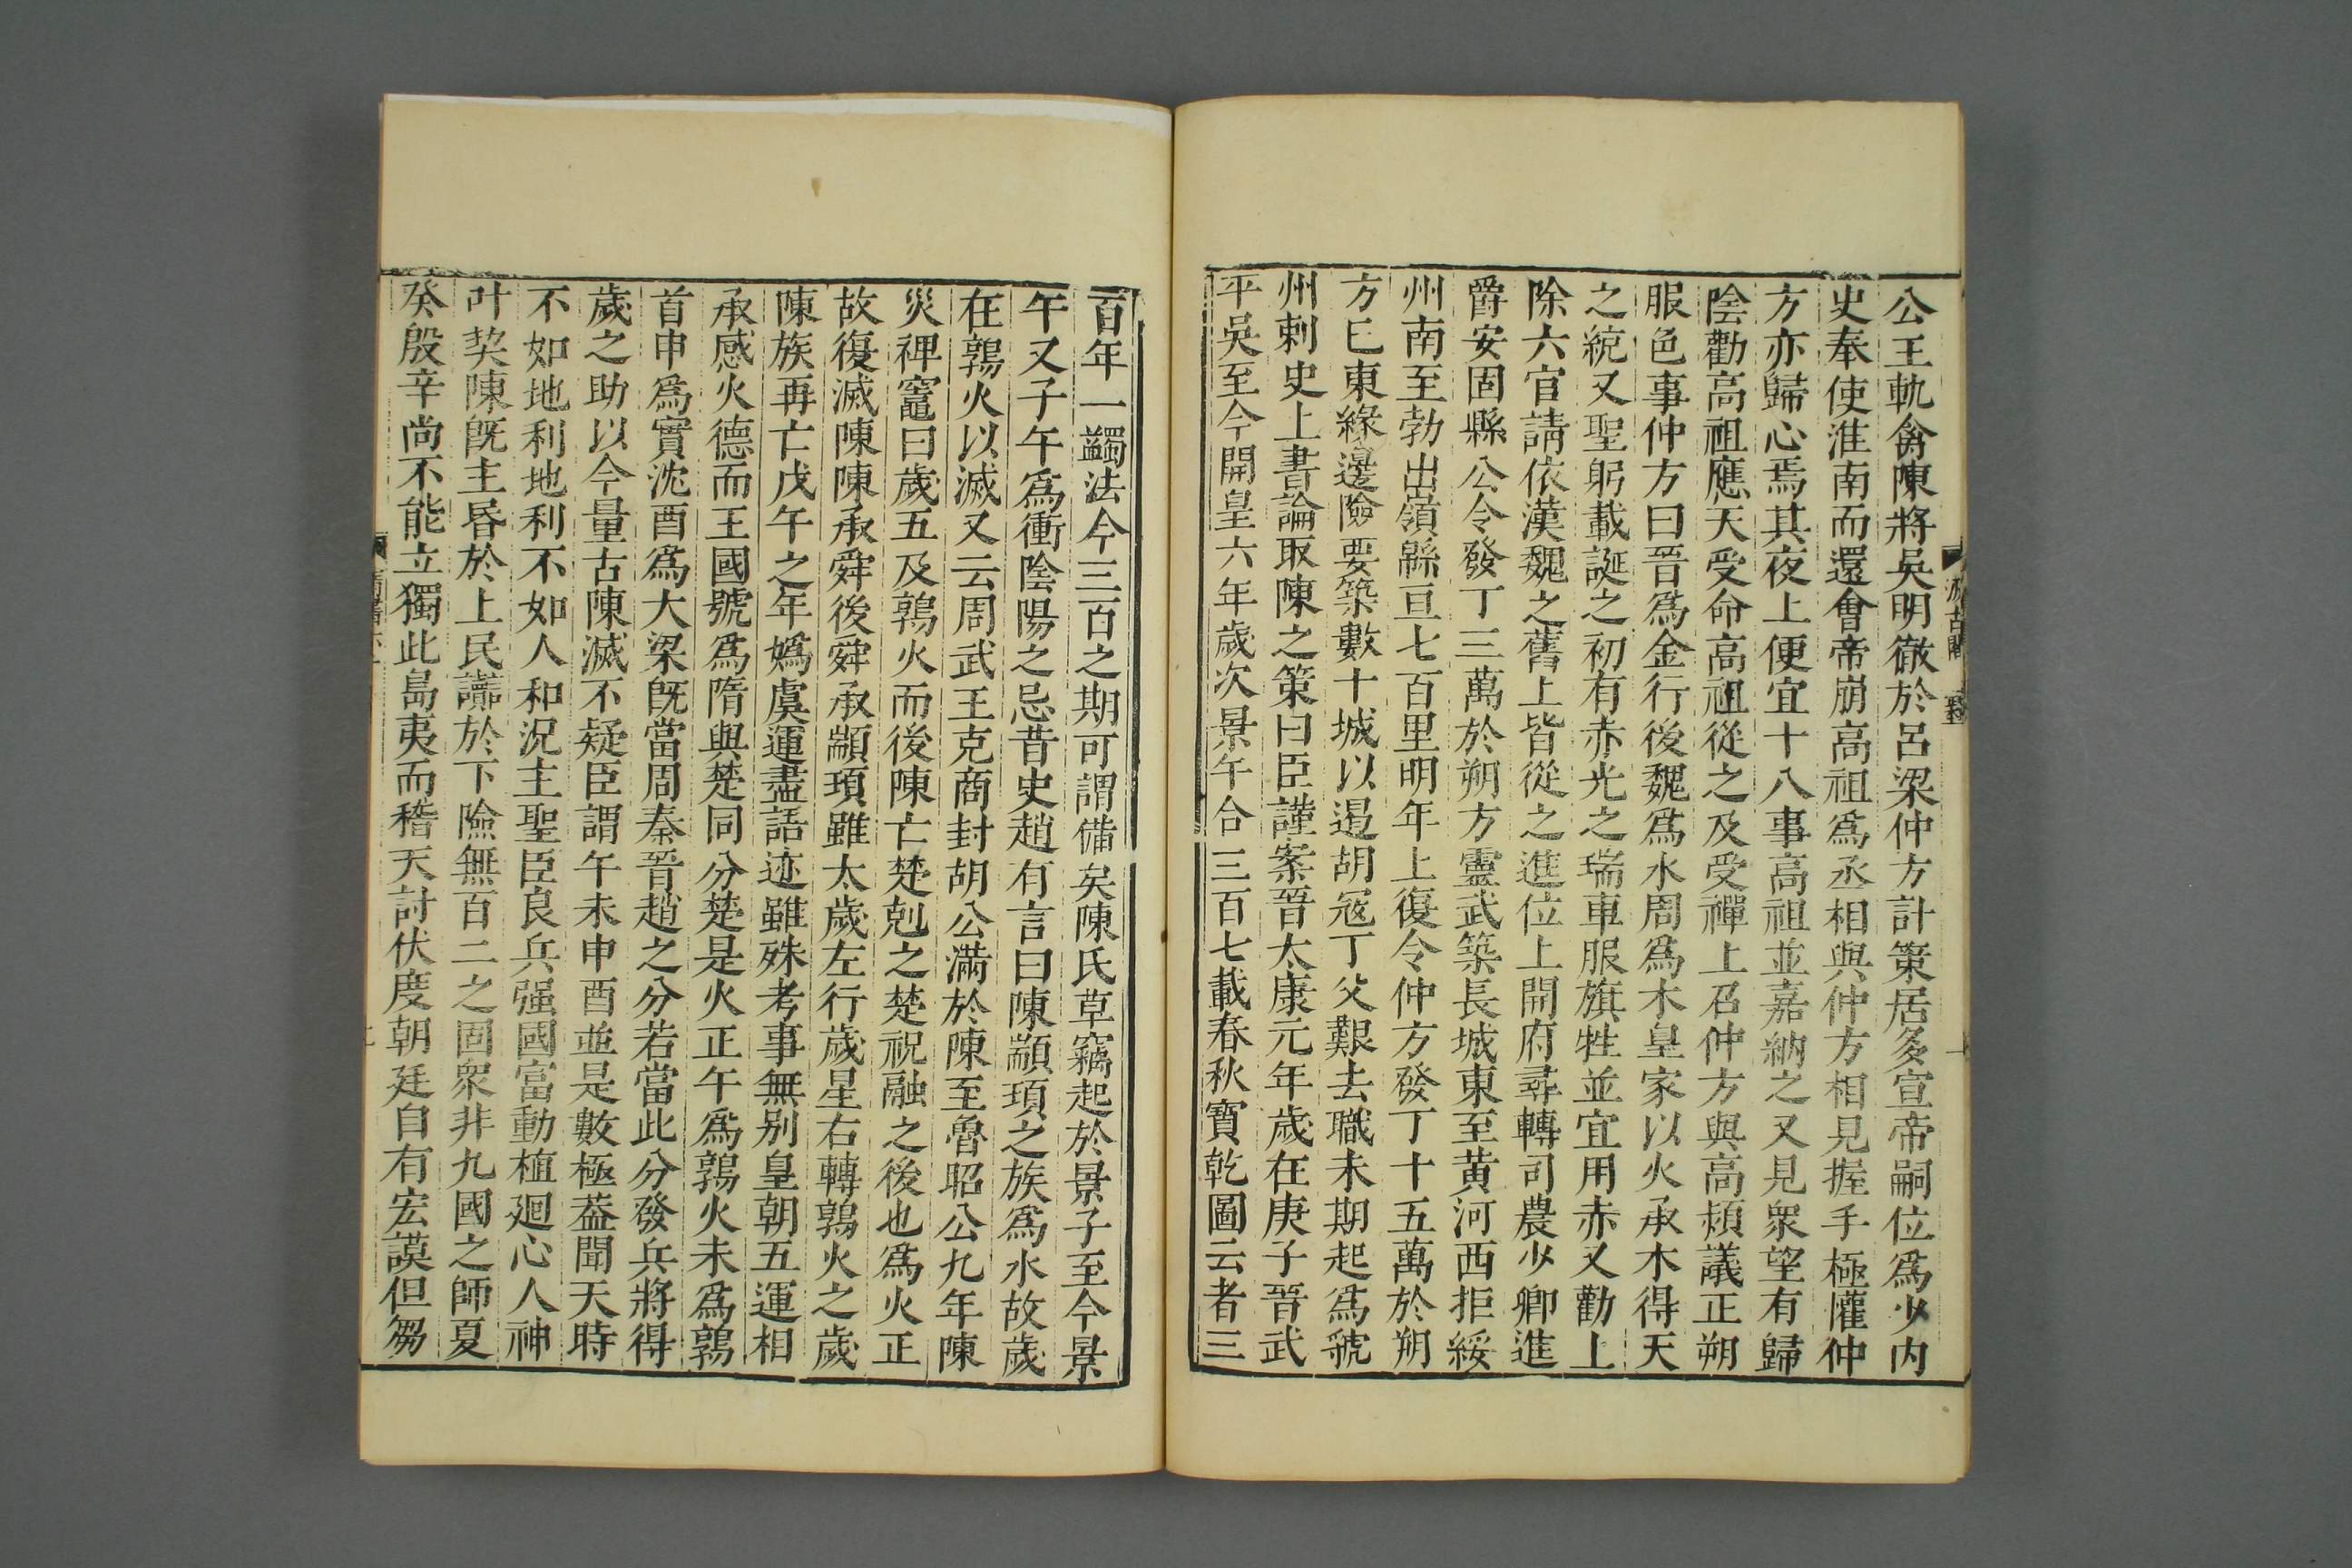 公王軌禽陳將吳明徹於呂梁仲方計策居多宣帝嗣位爲少内
史奉使淮南而還會帝崩高祖爲丞相與仲方相見握手極懽仲
方亦歸心焉其夜上便宜十八事高祖並嘉納之又見衆望有歸
陰勸高祖應天受命高祖從之及受禪上召仲方與高熲議正朔
服色事仲方曰晉爲金行後魏爲水周爲木皇家以火承木得天
之統又聖躬載誕之初有赤光之瑞車服旗牲並宜用赤又勸上
除六官請依漢魏之舊上皆從之進位上開府尋轉司農少卿進
爵安固縣公令發丁三萬於朔方靈武築長城東至黄河西拒綏
州南至勃出嶺緜亘七百里明年上復令仲方發丁十五萬於朔
方已東緣邊險要築數十城以遏胡寇丁父艱去職未期起爲虢
州刺史上書論取陳之策曰臣謹案晉太康元年歲在庚子晉武
平吳至今開皇六年歲次景午合三百七載春秋寶乾圖云者三
百年一蠲法今三百之期可謂備矣陳氏草竊起於景子至今景
午又子午爲衝陰陽之忌昔史趙有言曰陳顓頊之族爲水故歲
在鶉火以滅又云周武王克商封胡公滿於陳至魯昭公九年陳
災禆竈曰歲五及鶉火而後陳亡楚剋之楚祝融之後也爲火正
故復滅陳陳承舜後舜承顓頊雖太歲左行歲星右轉鶉火之歲
陳族再亡戊午之年嬀虞運盡語迹雖殊考事無别皇朝五運相
承感火德而王國號爲隋與楚同分楚是火正午爲鶉火未爲鶉
首申爲實沈酉爲大梁旣當周秦晉趙之分若當此分發兵將得
歲之助以今量古陳滅不疑臣謂午未申酉並是數極葢聞天時
不如地利地利不如人和況主聖臣良兵强國富動植迴心人神
叶契陳旣主昏於上民讟於下險無百二之固衆非九國之師夏
癸殷辛尚不能立獨此島夷而稽天討伏度朝廷自有宏謨但芻